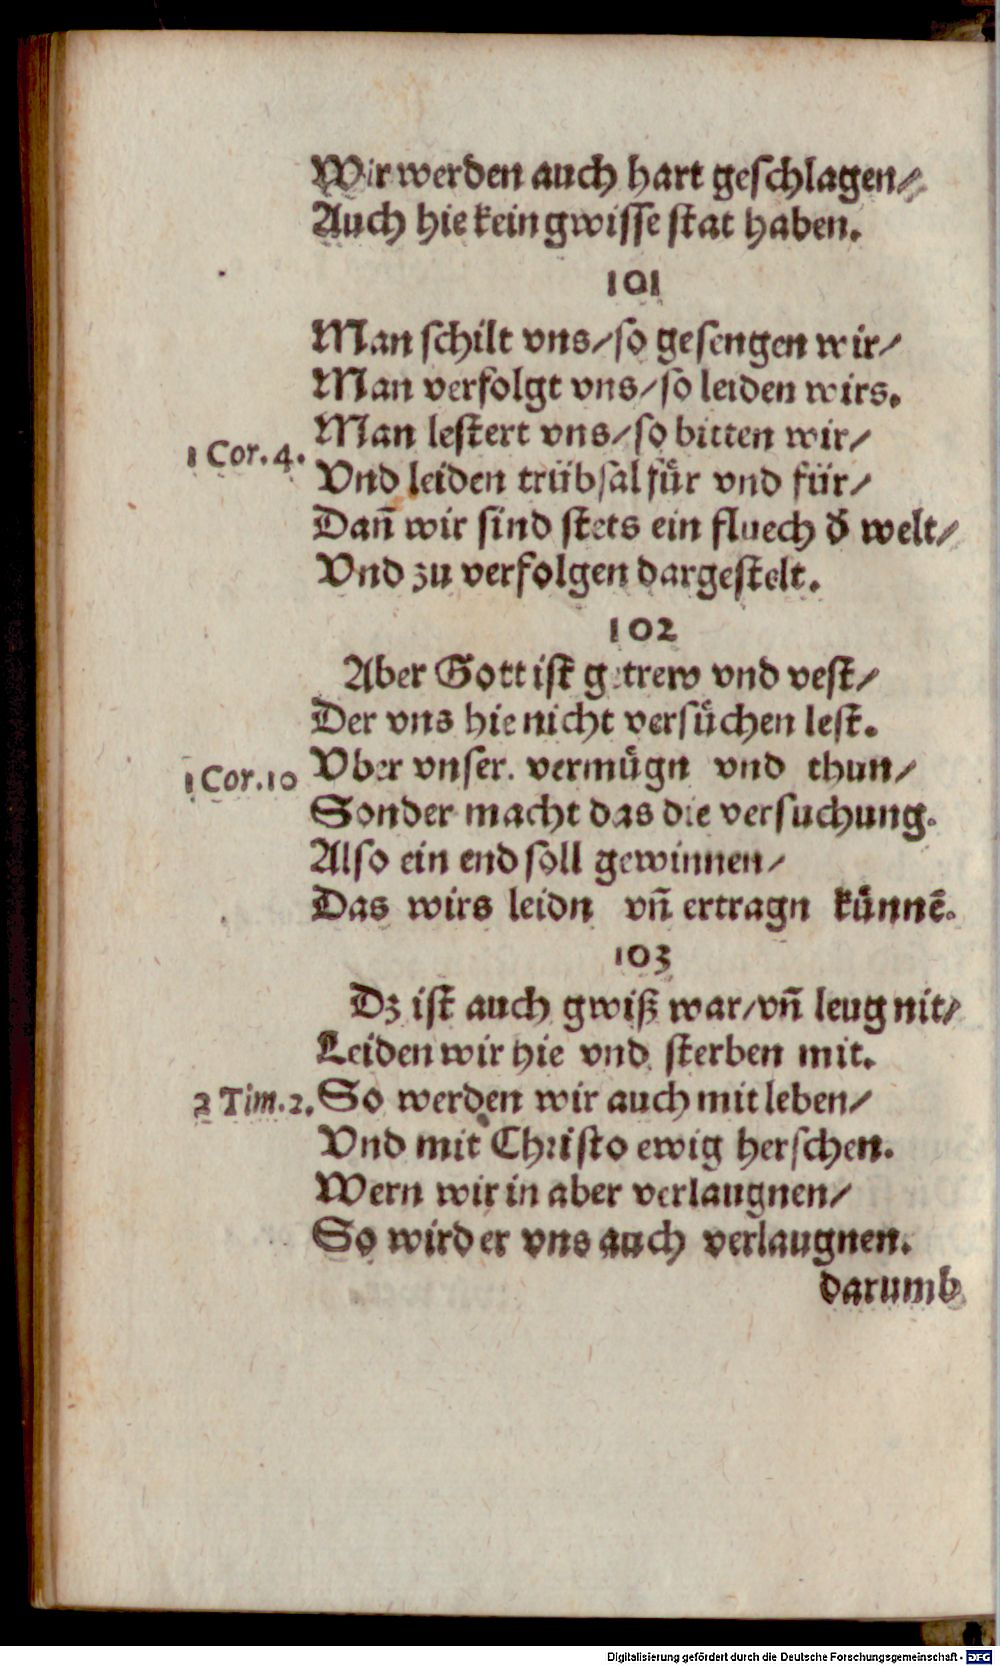 Wir werden auch hart geschlagen/
Auch hie kein gwisse stat haben.
101
Man schilt vns/so gesengen wir/
Man verfolgt vns/so leiden wirs.
Man lestert vns/so bitten wir/
1 Cor. 4.
Vnd leiden trübsal fuͤr vnd für/
Dañ wir sind stets ein fluech đ welt/
Vnd zu verfolgen dargestelt.
102
Aber Gott ist getrew vnd vest/
Der vns hie nicht versuͤchen lest.
1 Cor. 10
Vber vnser. vermuͤgn vnd thun/
Sonder macht das die versuchung.
Also ein end soll gewinnen/
Das wirs leidn vñ ertragn kuͤnnē.
103
Dz ist auch gwiß war/vñ leug nit/
Leiden wir hie vnd sterben mit.
2 Tim. 2.
So werden wir auch mit leben/
Vnd mit Christo ewig herschen.
Wern wir in aber verlaugnen/
So wird er vns auch verlaugnen.
darumb
Digitalisierung gefördert durch die Deutsche Forschungsgemeinschaft - DFG